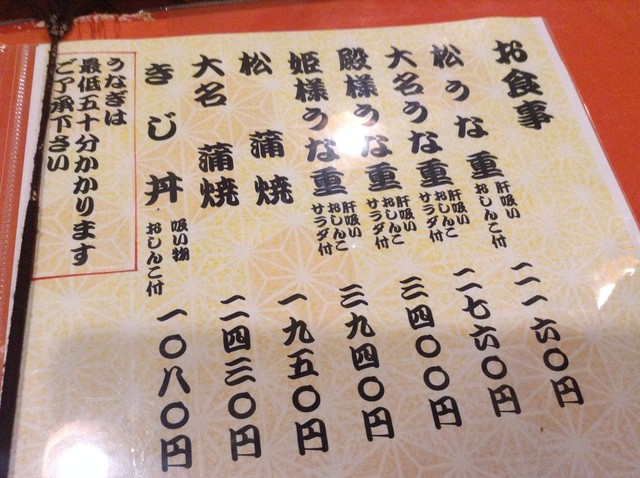 お食事
松うな重 肝吸い おしんこ付 二一六〇円
大名うな重 肝吸い おしんこ サラダ付 二七六〇円
殿様うな重 肝吸い おしんこ サラダ付 三四〇〇円
姫様うな重 肝吸い おしんこ サラダ付 三九四〇円
松 蒲焼 一九五〇円
大名 蒲焼 二四三〇円
きじ丼 吸い物 おしんこ付 一〇八〇円
うなぎは
最低五十分かかります
ご了承下さい